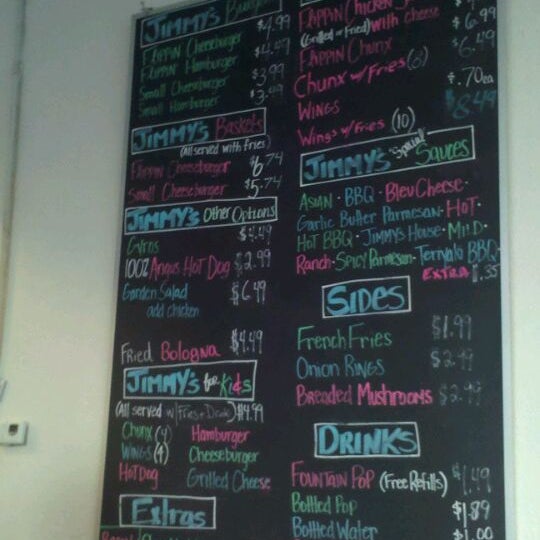 Jimmy's Burgers
Flippin Cheeseburger $4.99
Flippin Hamburger $4.49
Small Cheeseburger $3.99
Small Hamburger $3.49
Jimmy's Baskets
(All served with fries)
Flippin Cheeseburger $6.74
Small Cheeseburger $5.74
Jimmy's Other Options
Gyros $4.49
100Z Angus Hot Dog $2.99
Garden Salad $6.49
add chicken
Fried Bologna $4.49
Jimmy's for Kids
(All served w/Fries + Drink) $4.99
Chunx (4) Hamburger
Wings (4) Cheeseburger
Hot Dog Grilled Cheese
Extras
Flippin Chicken
(Grilled or Fried) with cheese $6.99
Flippin Chunx $6.49
Chunx w/ Fries (6)
Wings .70ea
Wings w/ Fries (10) 8.49
Jimmy's Special Sauces
Asian · BBQ · Bleu Cheese ·
Garlic Butter Parmesan · Hot ·
Hot BBQ · Jimmy's House · Mild ·
Ranch · Spicy Parmesan · Terryaki BBQ
Extra .35
Sides
French Fries $1.99
Onion Rings $2.99
Breaded Mushrooms $2.99
Drinks
Fountain Pop (Free Refills) $1.49
Bottled Pop $1.89
Bottled Water $1.00